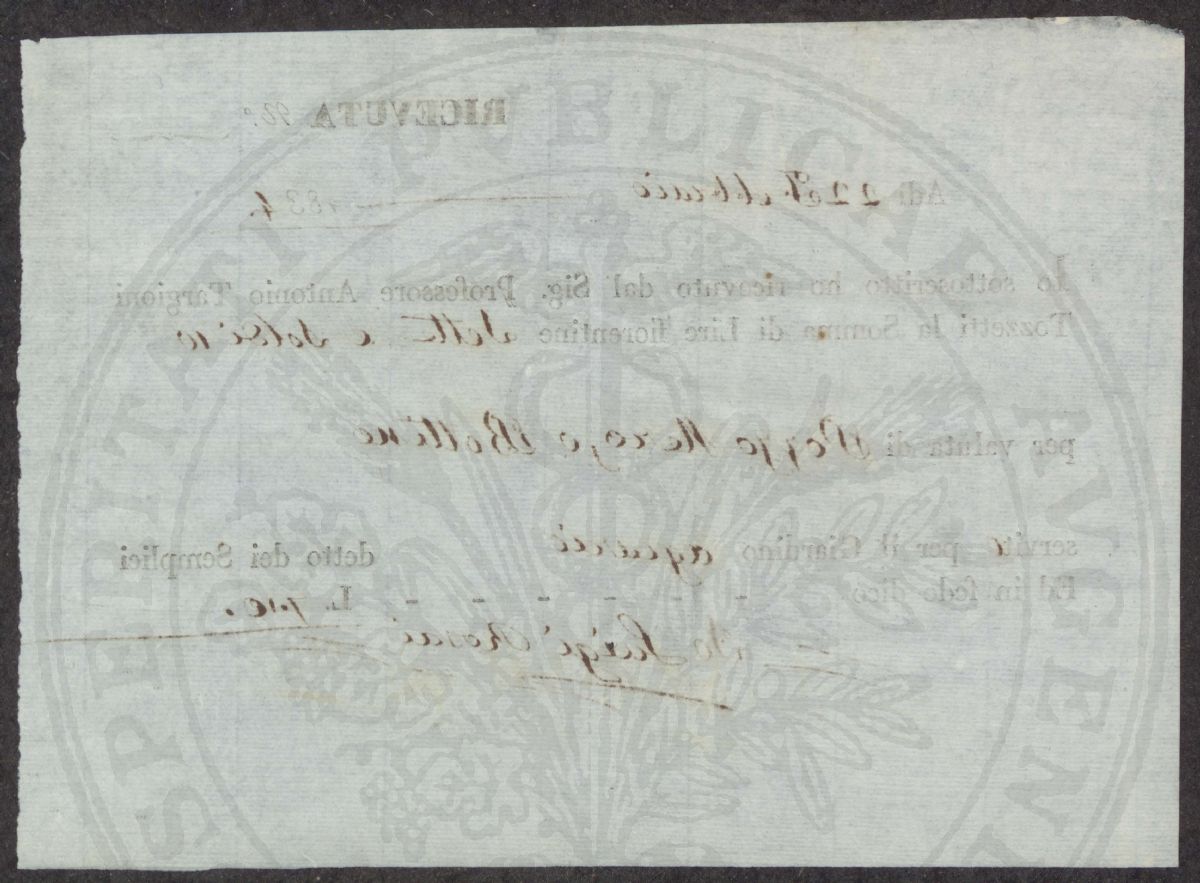 RICEVUTA
Adì 22 Febbraio 1834.
Io sottoscritto ho ricevuto dal Sig. Professore Antonio Targioni
Tozzetti la Somma di Lire fiorentine sette e soldi 10
per valuta di Mezzo Bottino
servito per il Giardino agrario detto dei Semplici
Ed in fede dico - - - - - - L. 7.10.
Io Luigi Rosai
SPERITATI PVBLICAE AVGEN